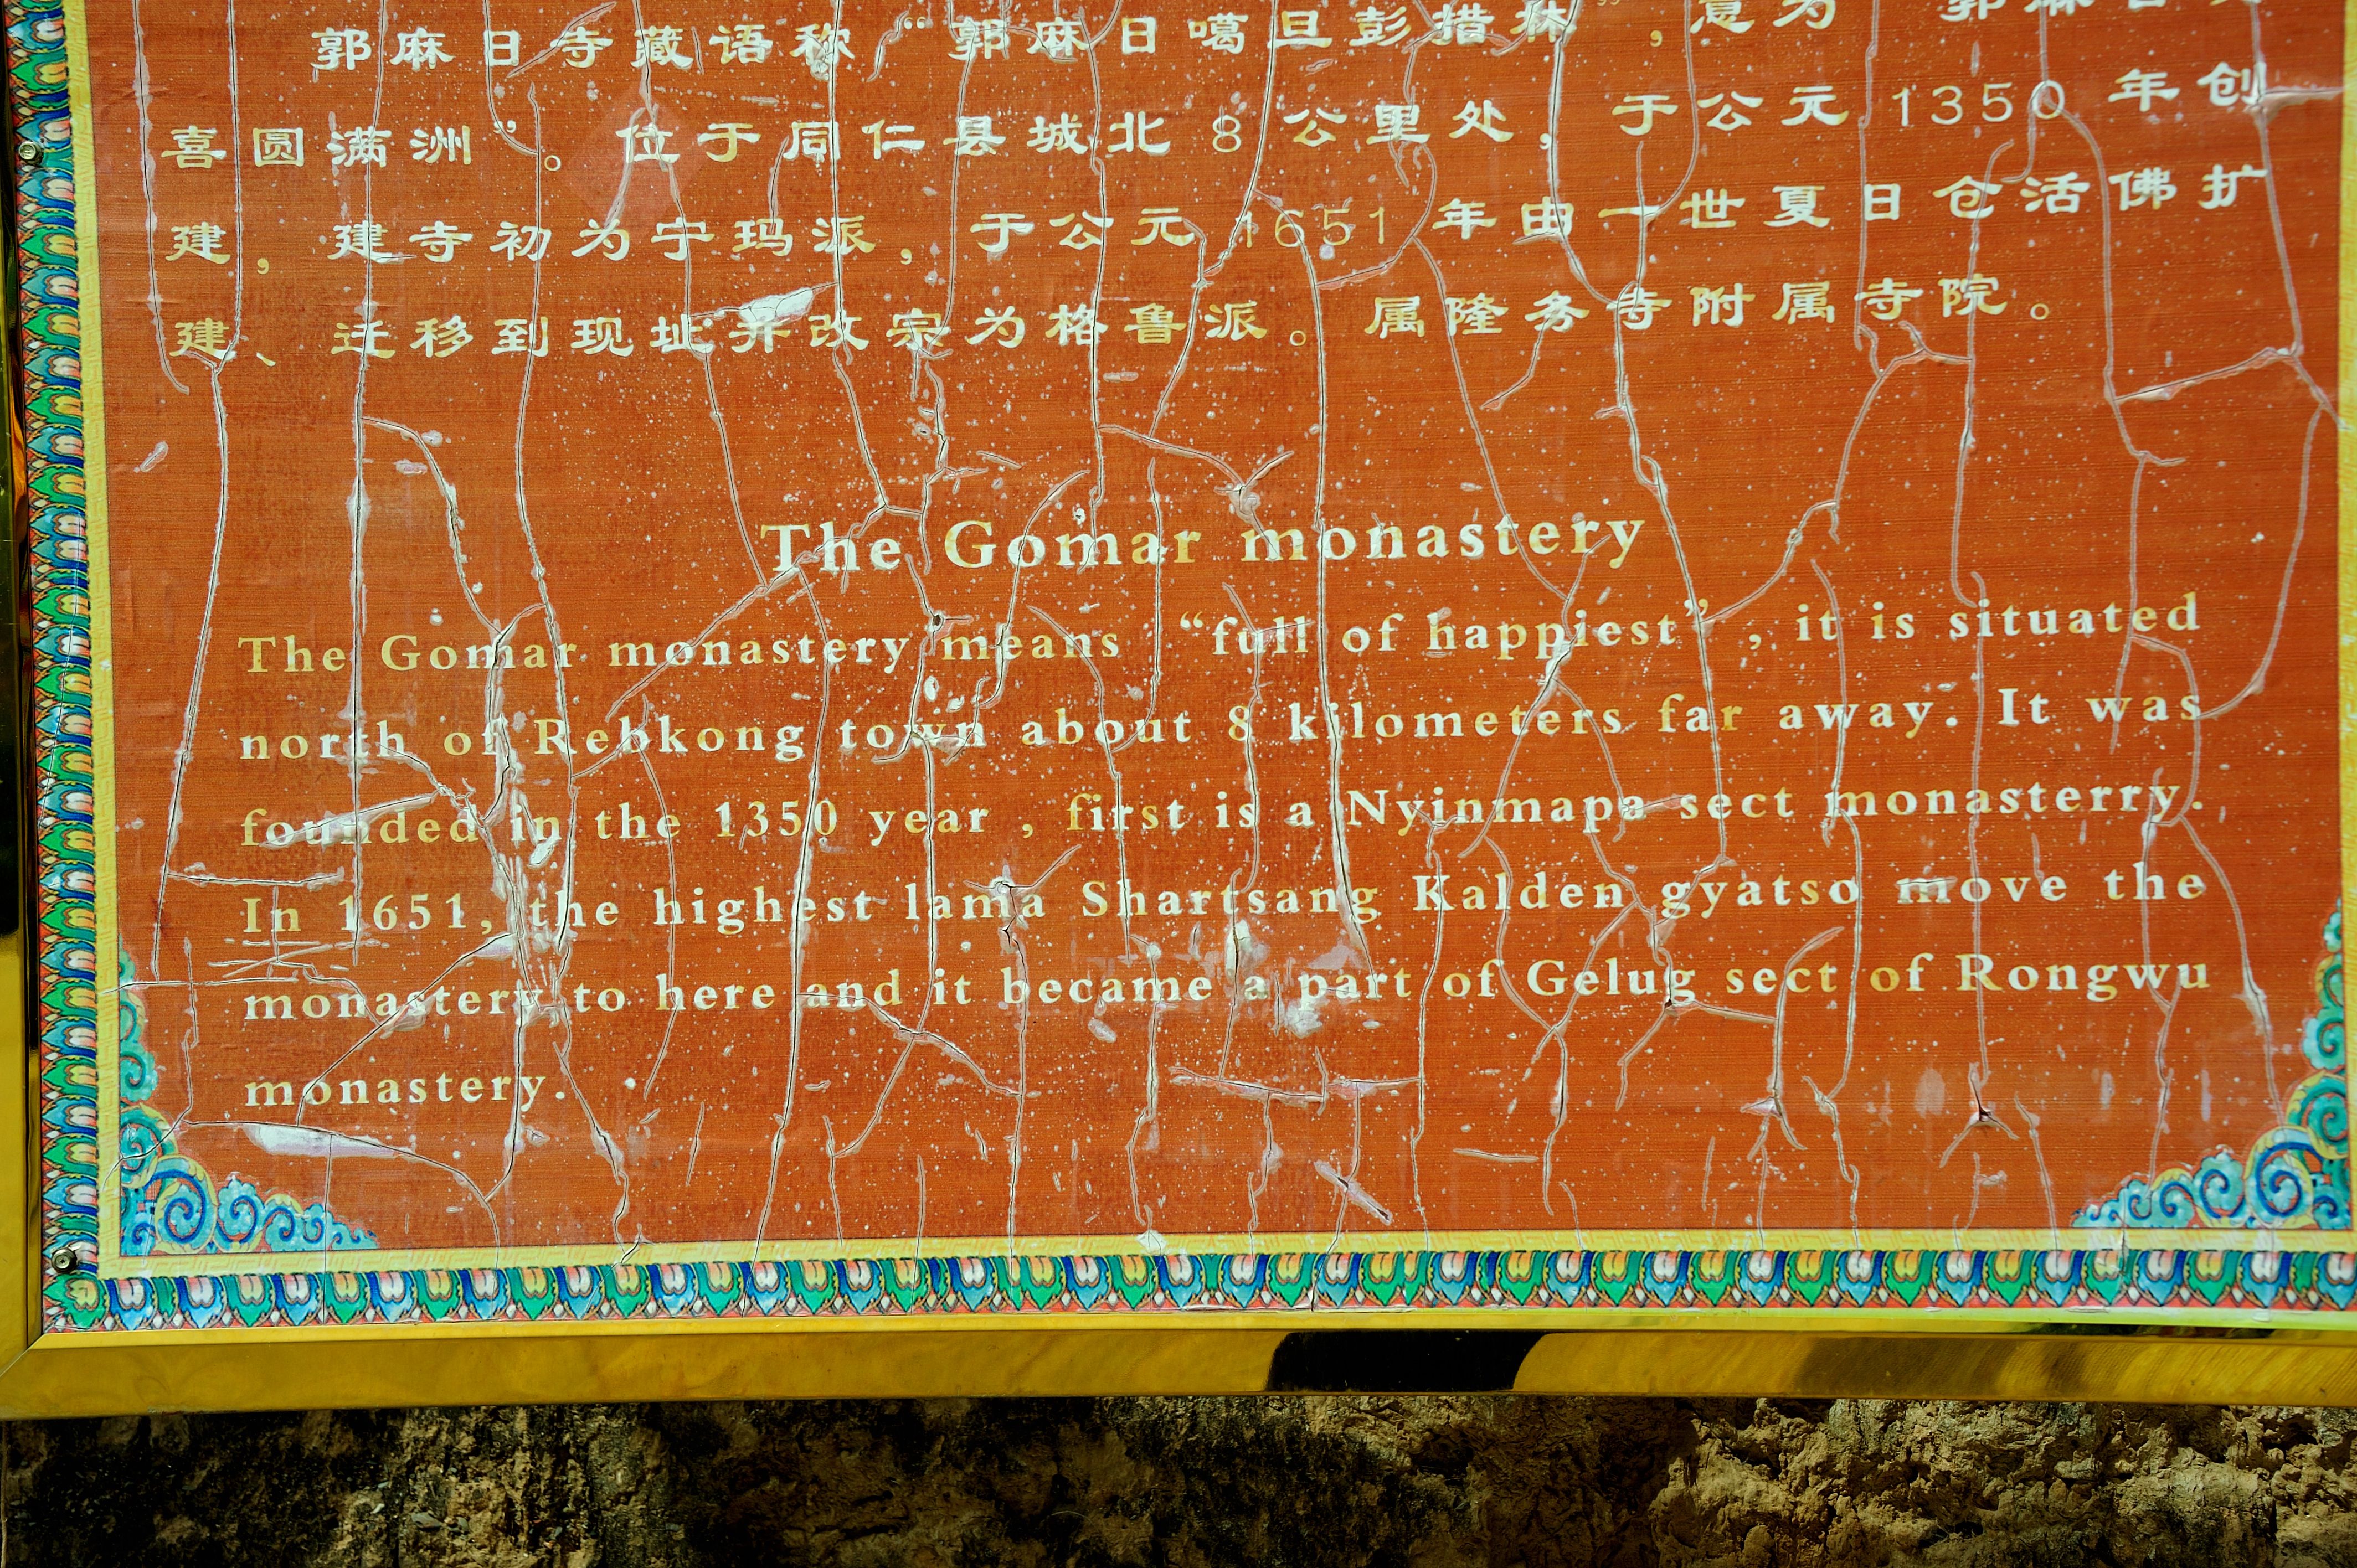 郭麻日寺藏语称“郭麻日噶旦彭措林”,意为“郭麻日
喜圆满洲”。位于同仁县城北8公里处,于公元1350年创
建,建寺初为宁玛派,于公元1651年由一世夏日仓活佛扩
建、迁移到现址并改宗为格鲁派。属隆务寺附属寺院。
The Gomar monastery
The Gomar monastery means “full of happiest”, it is situated
north of Rebkong town about 8 kilometers far away. It was
founded in the 1350 year , first is a Nyinmapa sect monasterry.
In 1651, the highest lama Shartsang Kalden gyatso move the
monastery to here and it became a part of Gelug sect of Rongwu
monastery.